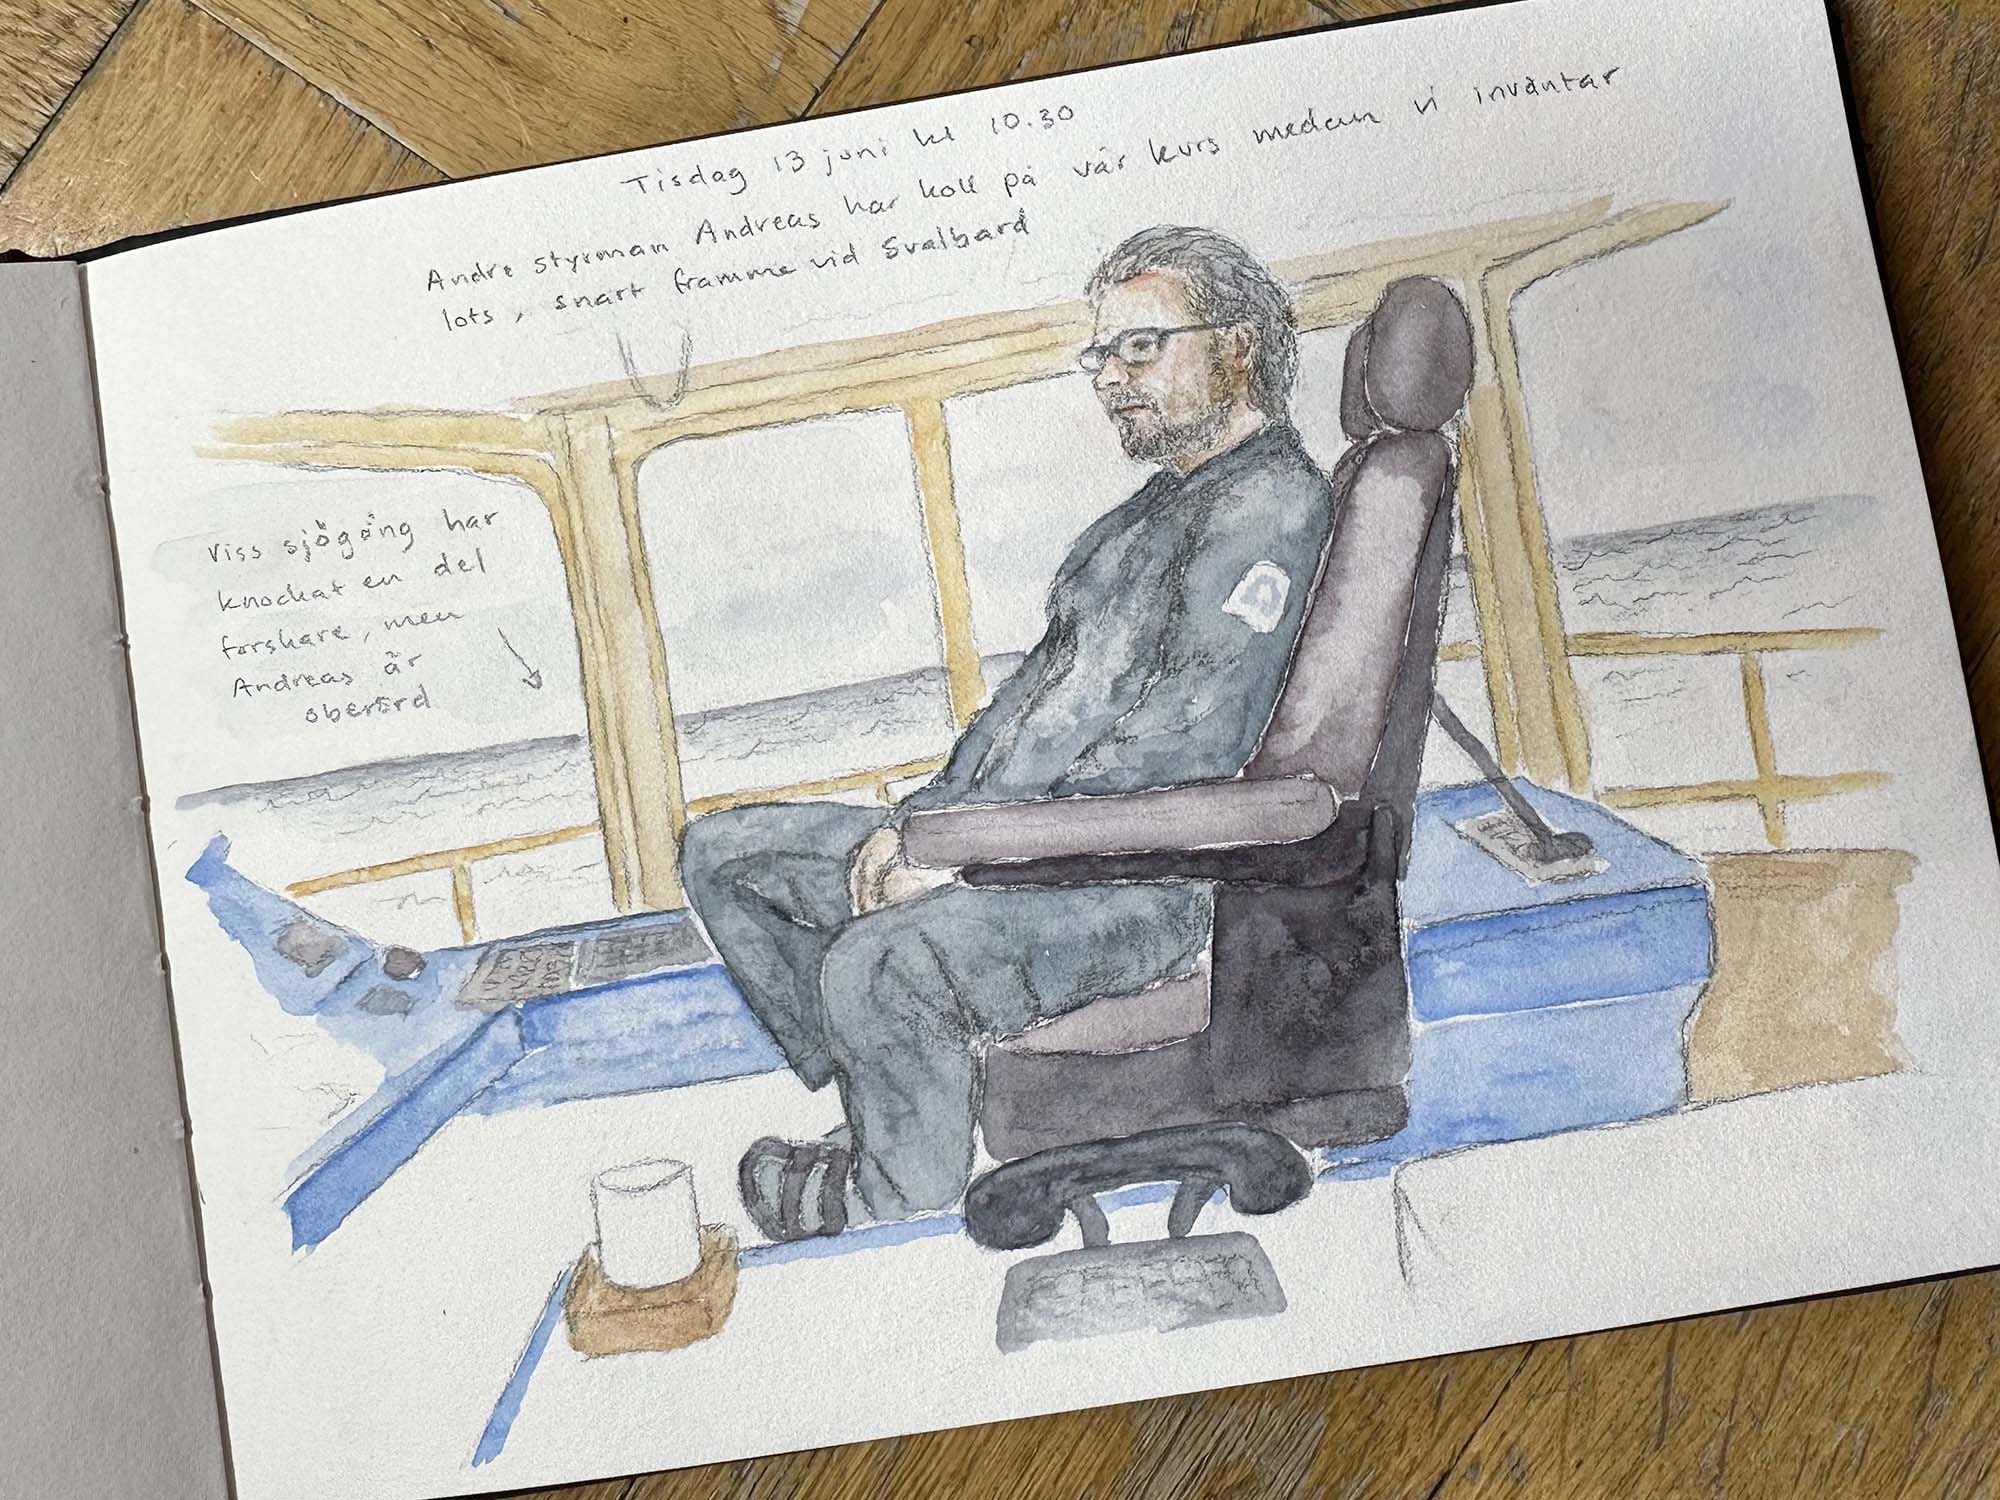 Tisdag 13 juni kl 10.30
Andre styrman Andreas har koll på vår kurs medan vi inväntar
lots, snart framme vid Svalbard
Viss sjögång har
knockat en del
forskare, men
Andreas är
oberörd